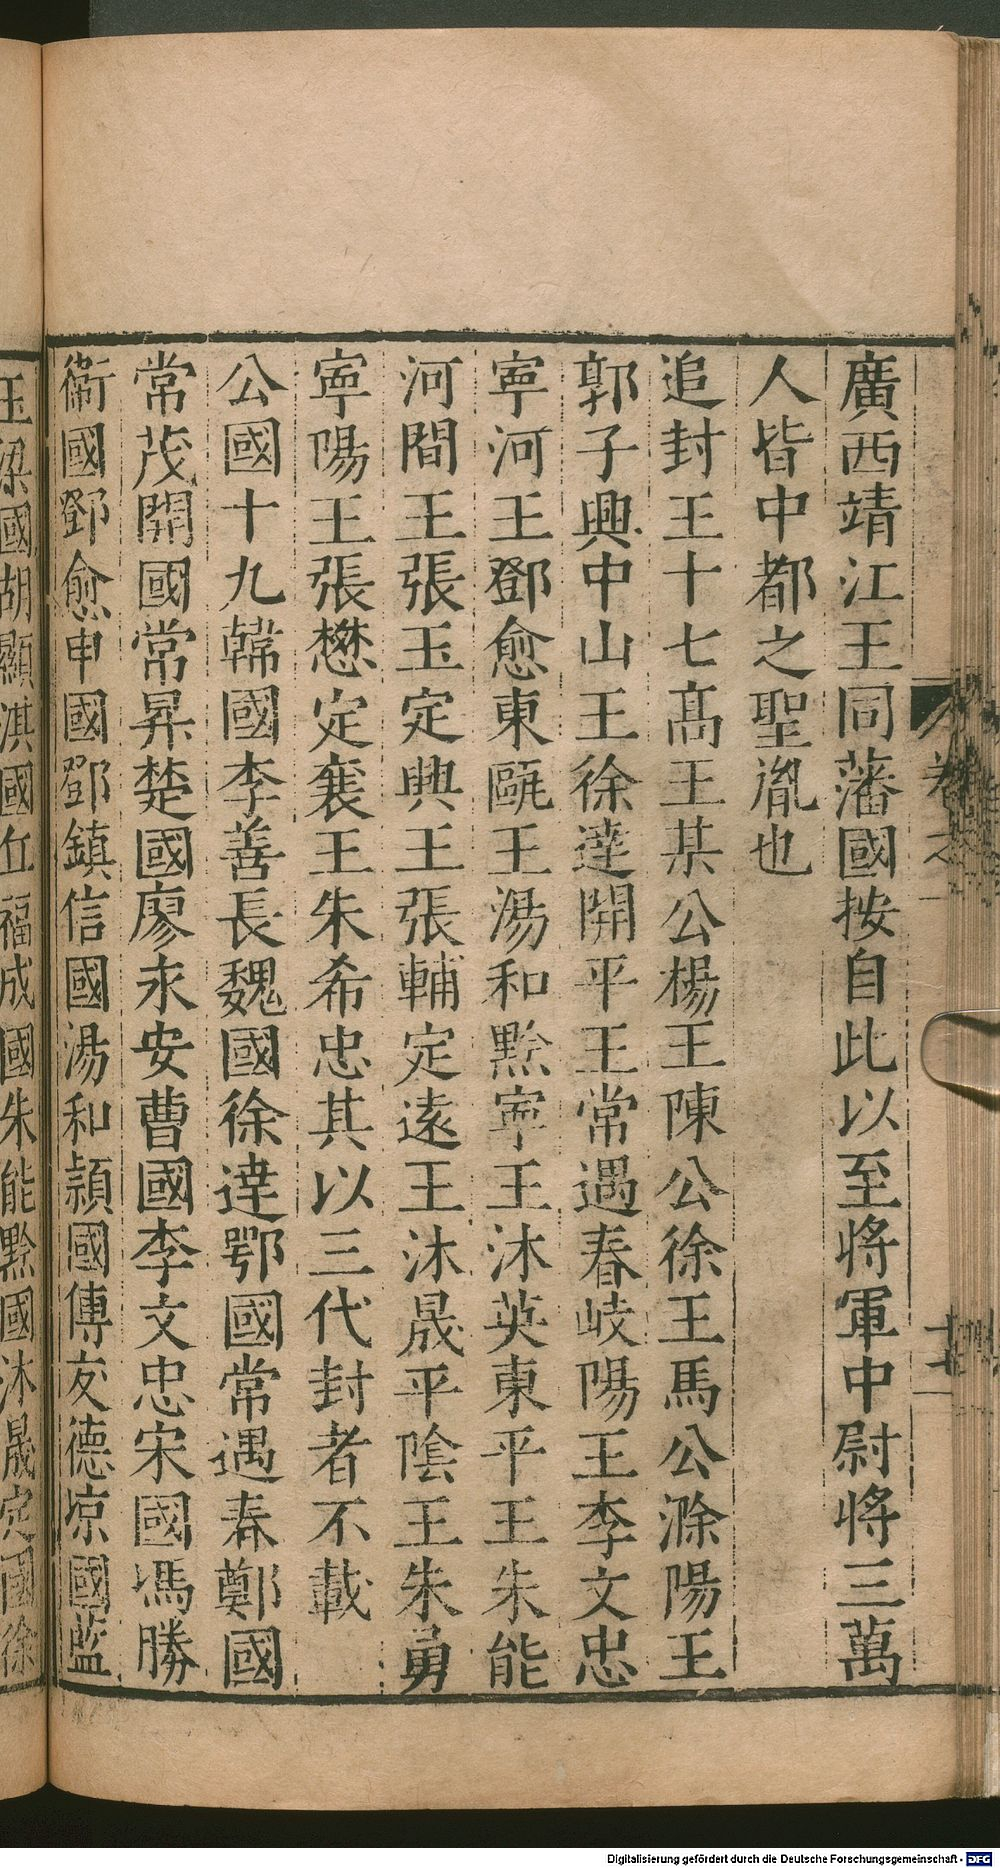 廣西靖江王同藩國按自此以至將軍中尉將三萬
人皆中都之聖胤也
追封王十七髙王某公楊王陳公徐王馬公滁陽王
郭子興中山王徐達開平王常遇春岐陽王李文忠
寧河王鄧愈東甌王湯和黔寧王沐英東平王朱能
河間王張玉定興王張輔定遠王沐晟平陰王朱勇
寧陽王張懋定襄王朱希忠其以三代封者不載
公國十九韓國李善長魏國徐達鄂國常遇春鄭國
常茂開國常昇楚國廖永安曹國李文忠宋國馮勝
衞國鄧愈申國鄧鎮信國湯和頴國傅友德凉國藍
玉梁國胡顯淇國丘福成國朱能黔國沐晟定國徐
卷之
十七
Digitalisierung gefördert durch die Deutsche Forschungsgemeinschaft - DFG